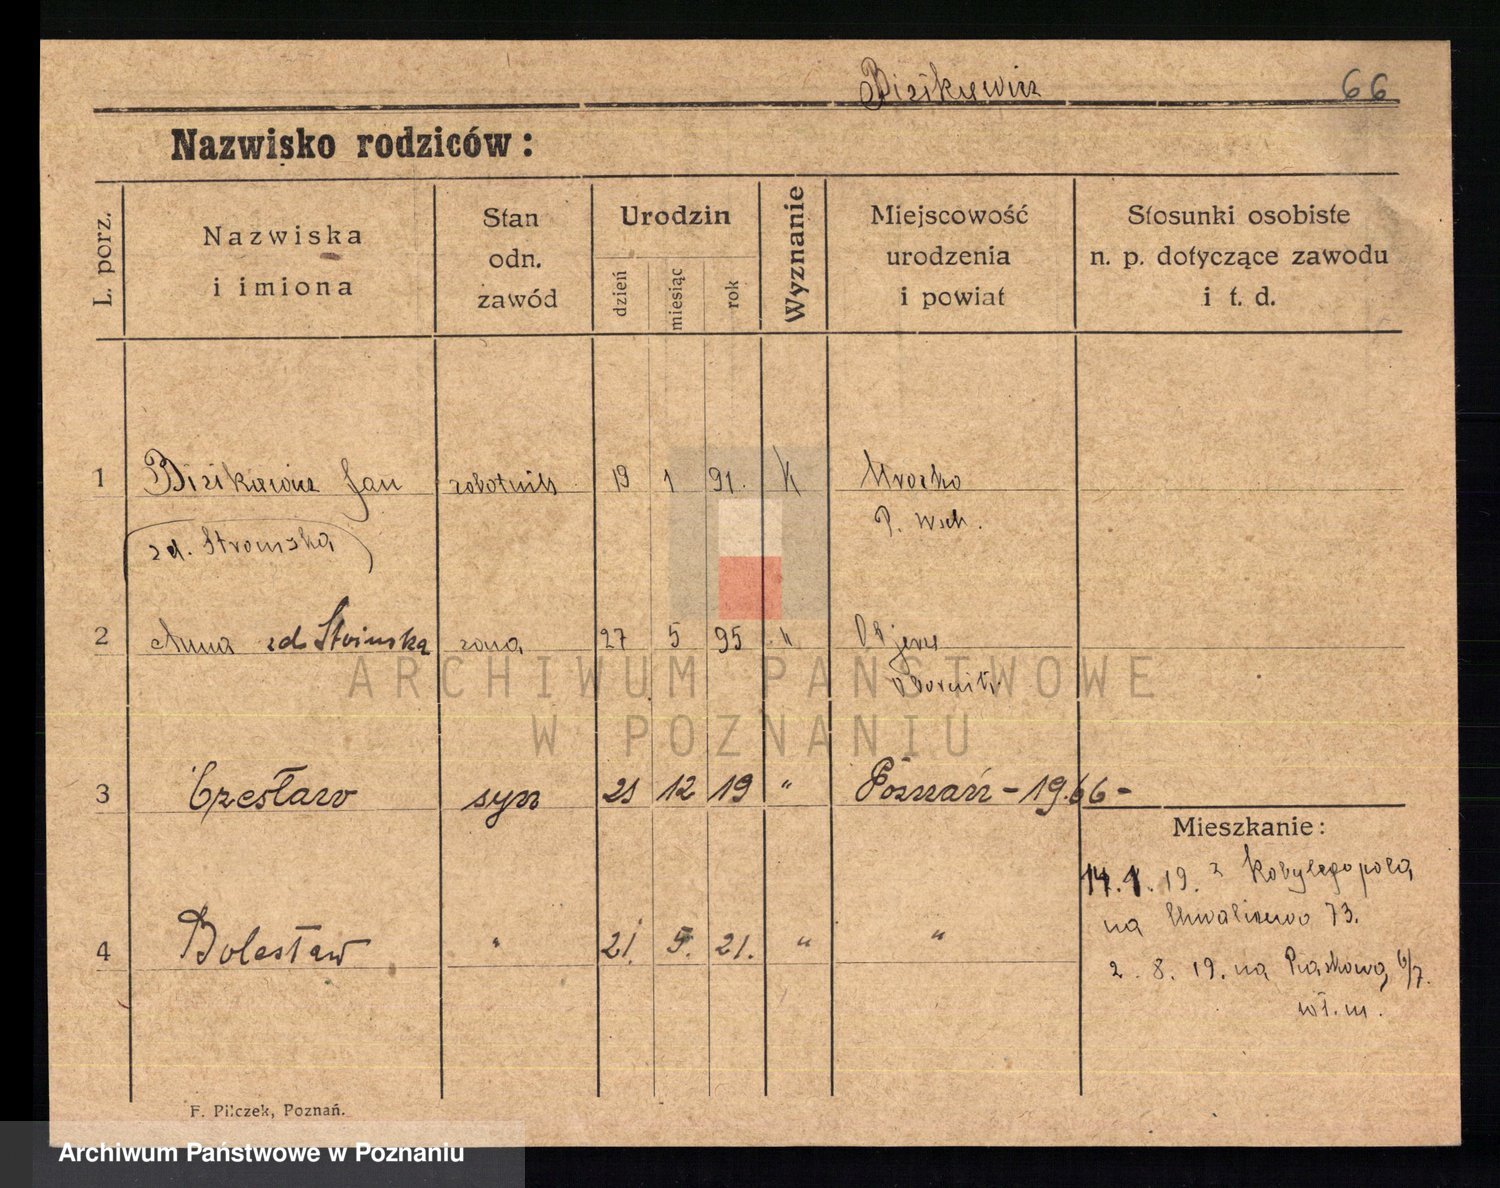 66
Nazwisko rodziców:
L. porz.
Nazwiska
i imiona
Stan
odn.
zawód
Urodzin
dzień
miesiąc
rok
Wyznanie
Miejscowość
urodzenia
i powiat
Stosunki osobiste
n. p. dotyczące zawodu
i t. d.
1 Jan robotnik 19 1 91. K
zd.
P. Wsch.
2 Anna zd. Stoinska żona 27 5 95 "
3 Czesław syn 21 12 19 " Poznań - 19.66 -
Mieszkanie:
14. 1. 19. z Kobylegopola
na Chwaliszewo 73.
4 Bolesław " 21. 5. 21. " "
2. 8. 19. na Piaskowa 6/7.
wł. m.
F. Pilczek, Poznań.
ARCHIWUM PAŃSTWOWE
W POZNANIU
Archiwum Państwowe w Poznaniu